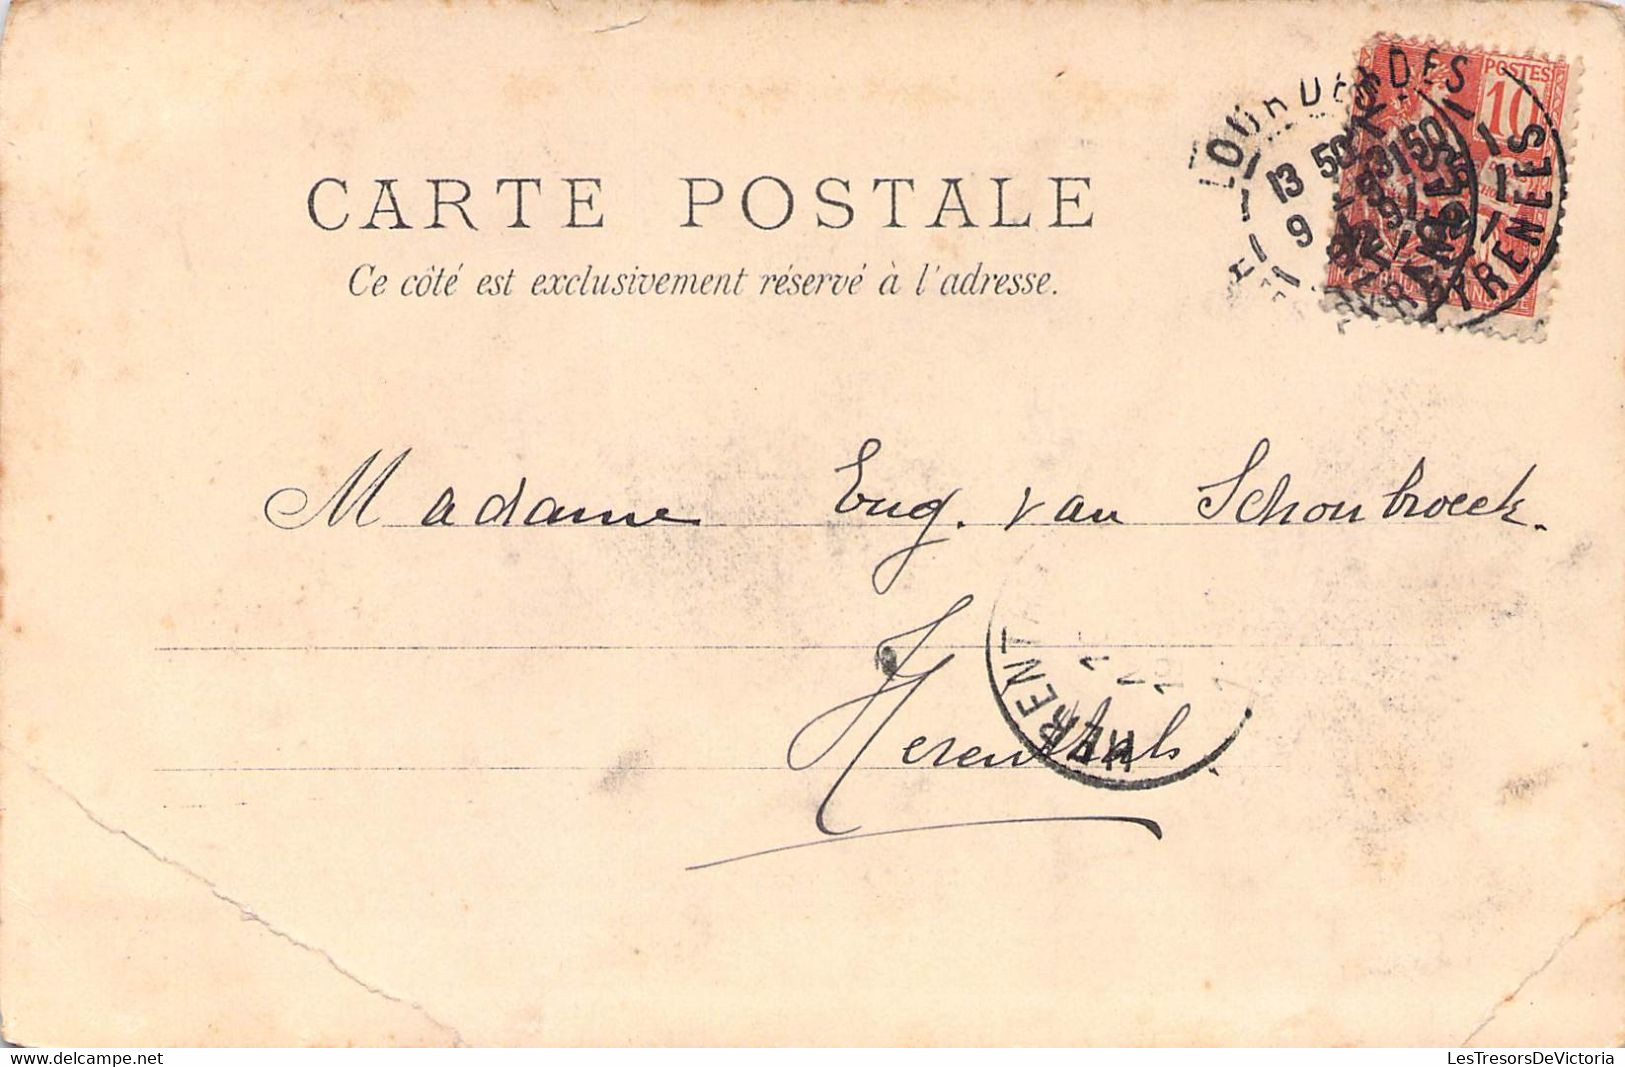 CARTE POSTALE
Ce côté est exclusivement réservé à l'adresse.
POSTES
10
LOURDES
13 50
9
PYRENEES
Madame Eug. van Schoubroeck.
Herenthals
HERENT
LesTresorsDeVictoria